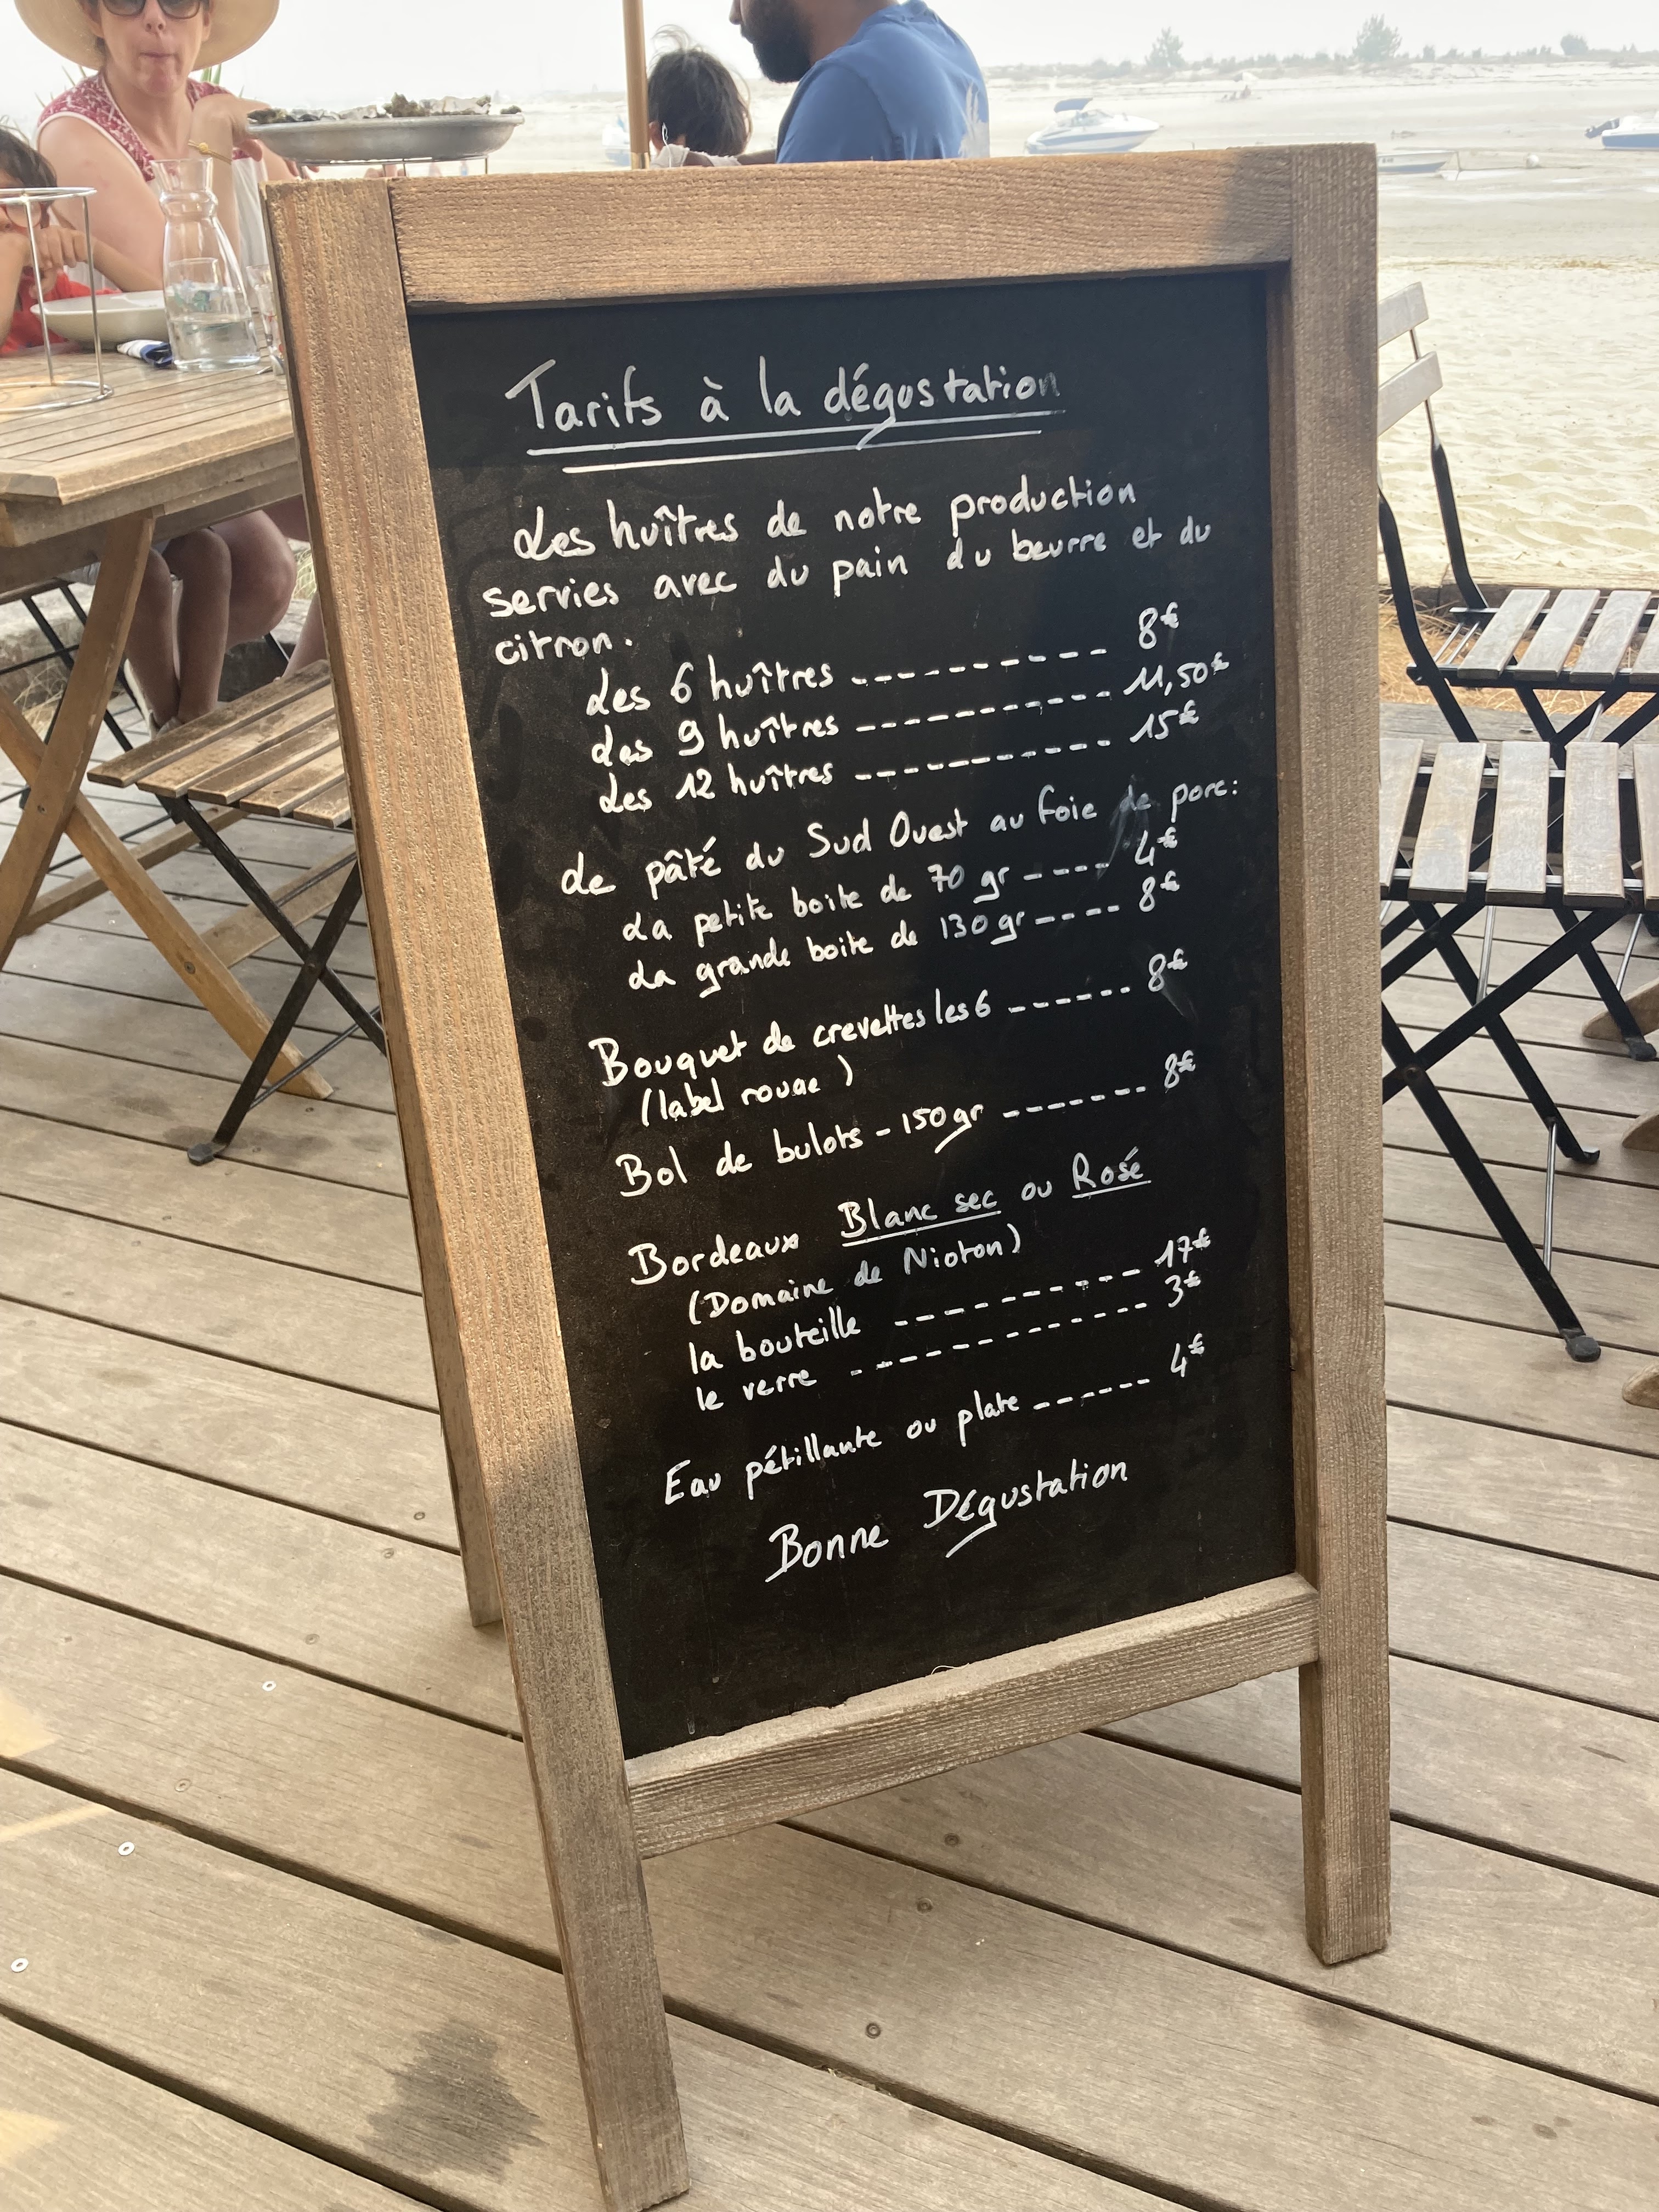 Tarifs à la dégustation
Les huîtres de notre production
servies avec du pain du beurre et du
citron.
Les 6 huîtres ---------- 8€
Les 9 huîtres ---------- 11,50€
Les 12 huîtres ---------- 15€
Le pâté du Sud Ouest au foie de porc:
La petite boite de 70 gr ---- 4€
La grande boite de 130 gr ---- 8€
Bouquet de crevettes les 6 ------ 8€
(label rouge)
Bol de bulots - 150 gr ------- 8€
Bordeaux Blanc sec ou Rosé
(Domaine de Nioton)
la bouteille ---------- 17€
le verre ------------ 3€
Eau pétillante ou plate ------ 4€
Bonne Dégustation